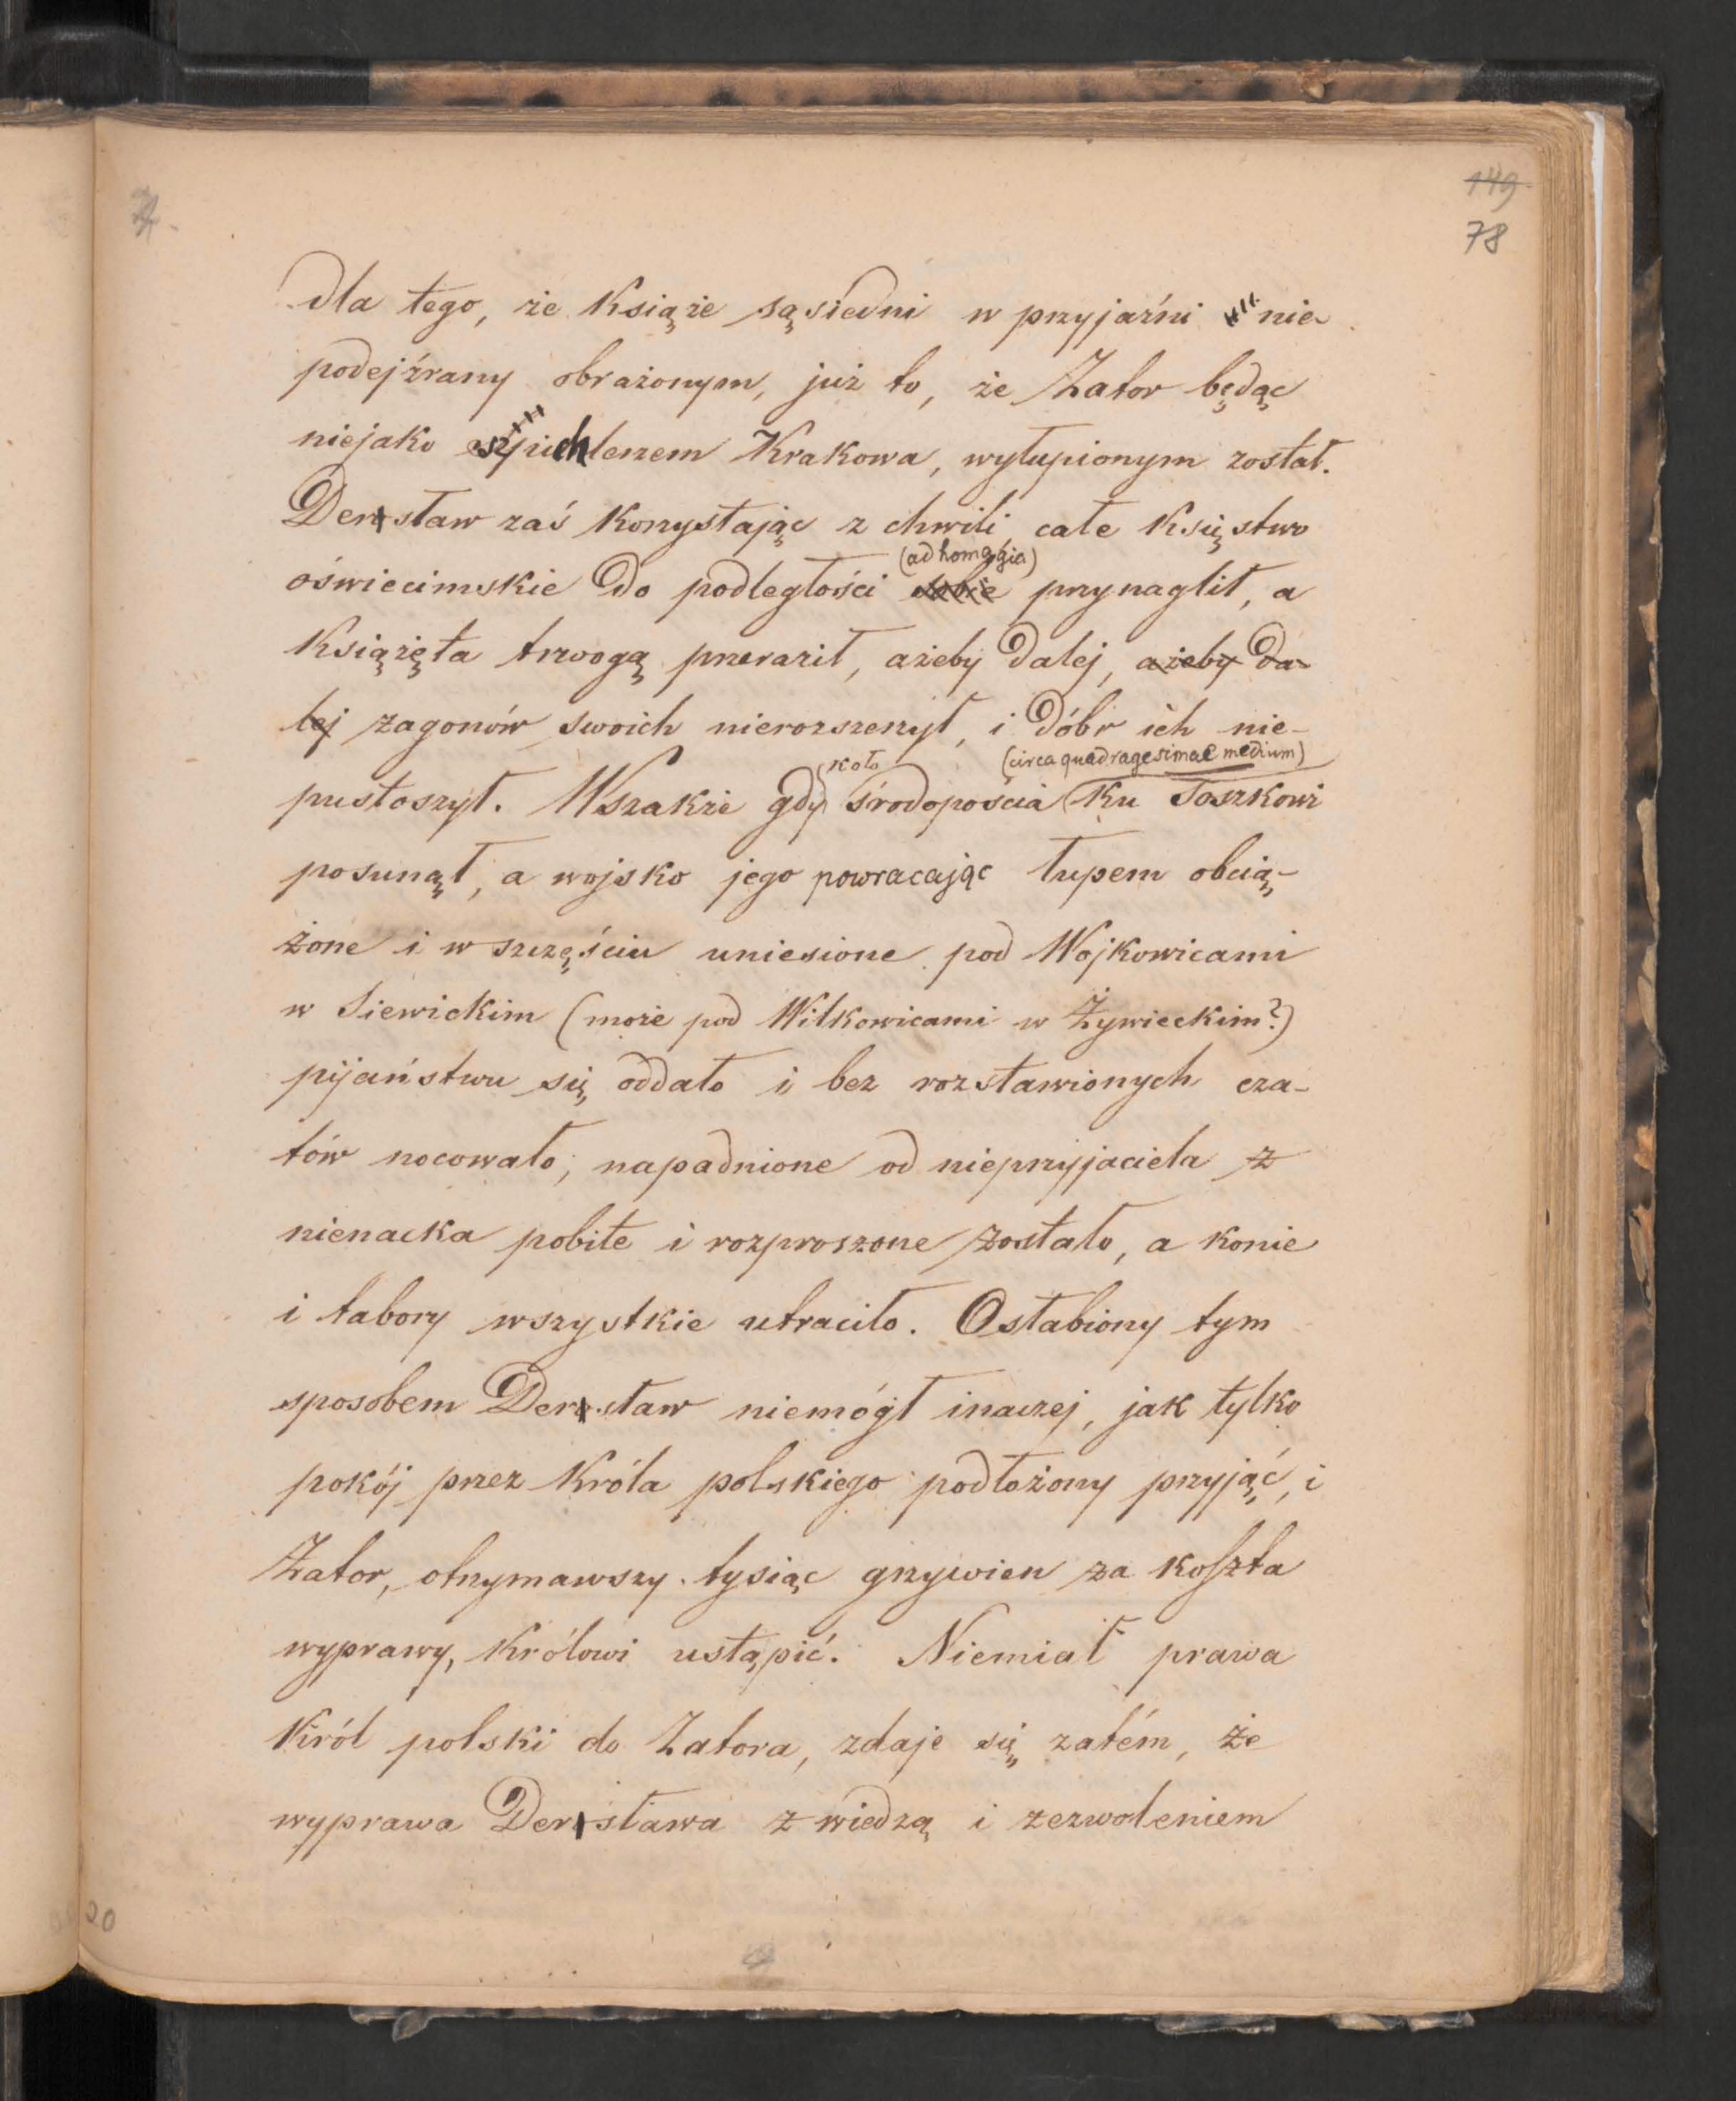 149
78
dla tego, że Książe sąsiedni w przyjaźni nie
podejźrany obrażonym, już to, że Zator będąc
niejako spichlerzem Krakowa, wyłupionym został.
Dersław zaś Korzystając z chwili całe Księstwo
(ad homagia)
oświecimskie do podległości sobie przynaglił, a
Książęta trwogą przeraził, ażeby dalej, ażeby da-
lej zagonów swoich nierozszerzył, i dóbr ich nie-
koło (circa quadragesimae medium)
pustoszył. Wszakże gdy środopościa ku Toszkowi
posunął, a wojsko jego powracając łupem obcią-
żone i w szczęściu uniesione pod Wojkowicami
w Siewickim (może pod Wilkowicami w Żywieckim?)
pijaństwu się oddało i bez rozstawionych cza-
tów nocowało, napadnione od nieprzyjaciela z
nienacka pobite i rozproszone zostało, a konie
i tabory wszystkie utraciło. Osłabiony tym
sposobem Dersław niemógł inaczej, jak tylko
pokój przez Króla polskiego podłożony przyjąć, i
Zator, otrzymawszy tysiąc grzywien za koszta
wyprawy, Królowi ustąpić. Niemiał prawa
Król polski do Zatora, zdaje się zatém, że
wyprawa Dersława z wiedzą i zezwoleniem
20